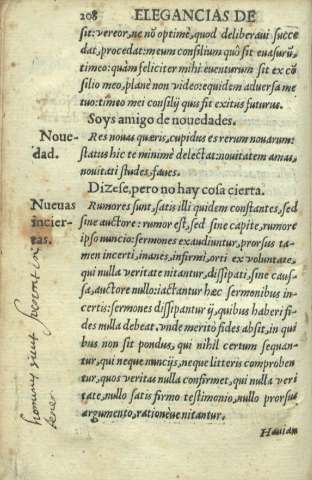 208 ELEGANCIAS DE
sit: vereor, ne nō optimè, quod deliberaui succe
dat, procedat: meum consilium quò sit euasurū,
timeo: quàm feliciter mihi euenturum sit ex cō
silio meo, planè non video: equidem aduersa me
tuo: timeo mei consilij quis fit exitus futurus.
Soys amigo de nouedades.
Noue-
dad.
Res nouas quæris, cupidus es rerum nouarum:
status hic te minimè delectat: nouitatem amas,
nouitati studes, faues.
Dizese, pero no hay cosa cierta.
Nueuas
incier-
tas.
Rumores sunt, satis illi quidem constantes, sed
sine auctore: rumor est, sed sine capite, rumore
ipso nuncio: sermones exaudiuntur, prorsus ta-
men incerti, inanes, infirmi, orti ex voluntate,
qui nulla veritate nitantur, dissipati, sine caus-
sa, auctore nullo: iactantur hæc sermonibus in-
certis: sermones dissipantur ij, quibus haberi fi-
des nulla debeat, vnde meritò fides absit, in qui
bus non sit pondus, qui nihil certum sequan-
tur, qui neque nuncijs, neque litteris comproben
tur, quos veritas nulla confirmet, qui nulla veri
tate, nullo satis firmo testimonio, nullo prorsus
argumento, rationéve nitantur.
Hauian